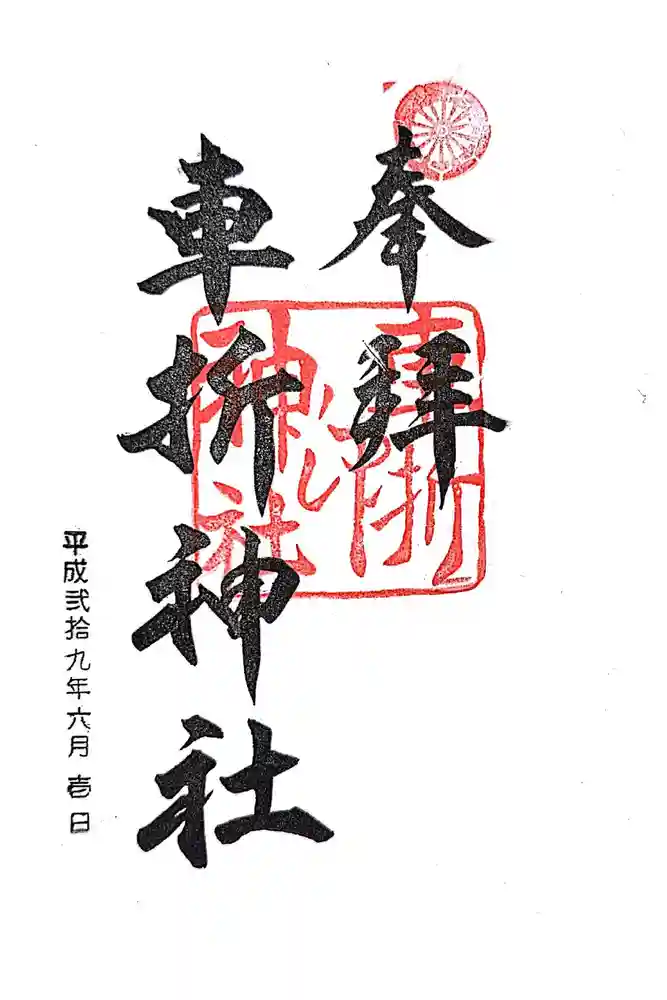 奉拝
車折神社
平成弐拾九年六月壱日
車折
神社